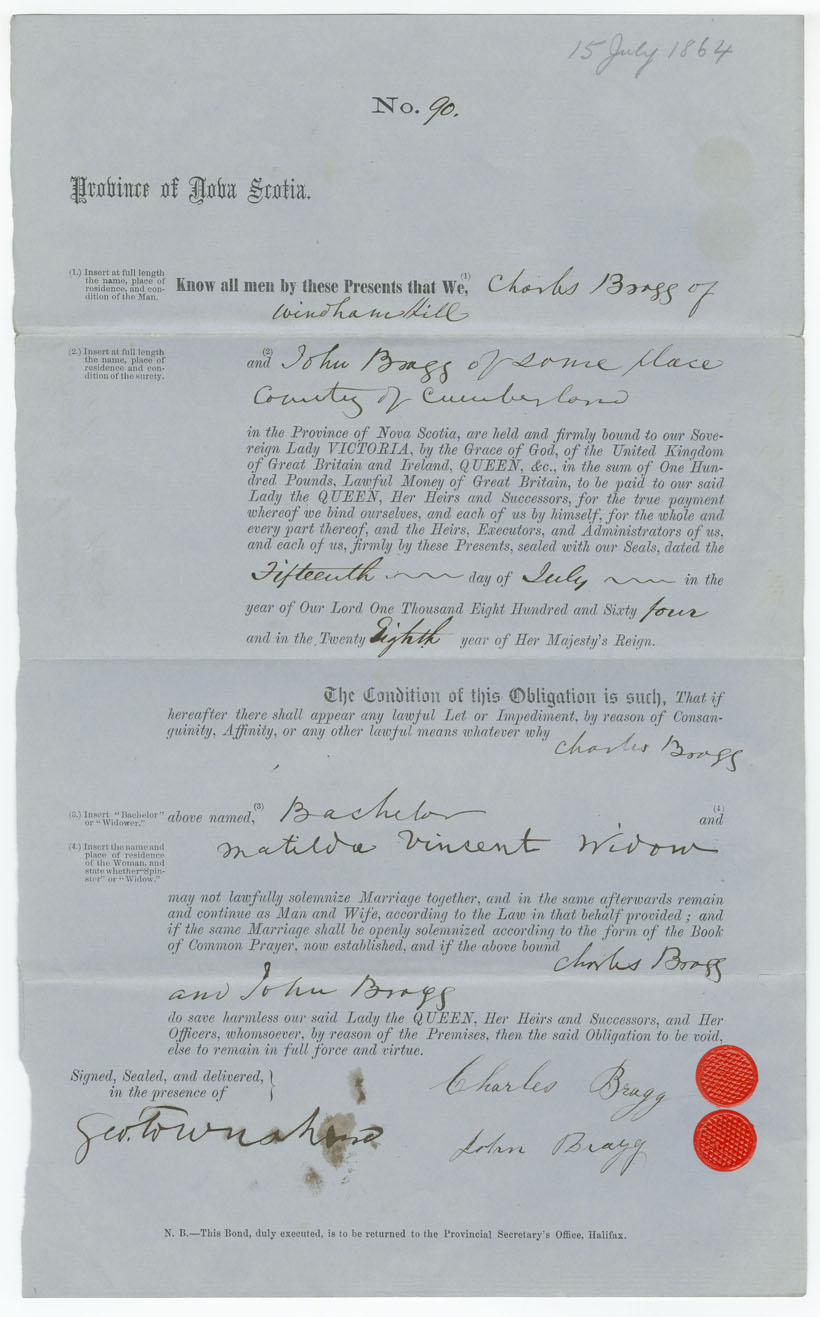 15 July 1864
No. 90.
Province of Nova Scotia.
(1.) Insert at full length
the name, place of
residence, and con-
dition of the Man.
Know all men by these Presents that We, (1) Charles Bragg of
Windham Hill
(2.) Insert at full length
the name, place of
residence and con-
dition of the surety.
and (2) John Bragg of same place
County of Cumberland
in the Province of Nova Scotia, are held and firmly bound to our Sove-
reign Lady VICTORIA, by the Grace of God, of the United Kingdom
of Great Britain and Ireland, QUEEN, &c., in the sum of One Hun-
dred Pounds, Lawful Money of Great Britain, to be paid to our said
Lady the QUEEN, Her Heirs and Successors, for the true payment
whereof we bind ourselves, and each of us by himself, for the whole and
every part thereof, and the Heirs, Executors, and Administrators of us,
and each of us, firmly by these Presents, sealed with our Seals, dated the
Fifteenth day of July in the
year of Our Lord One Thousand Eight Hundred and Sixty four
and in the Twenty Eighth year of Her Majesty's Reign.
The Condition of this Obligation is such, That if
hereafter there shall appear any lawful Let or Impediment, by reason of Consan-
guinity, Affinity, or any other lawful means whatever why
Charles Bragg
(3.) Insert "Bachelor"
or "Widower."
above named, (3) Bachelor and (4)
(4.) Insert the name and
place of residence
of the Woman, and
state whether "Spin-
ster" or "Widow."
Matilda Vincent Widow
may not lawfully solemnize Marriage together, and in the same afterwards remain
and continue as Man and Wife, according to the Law in that behalf provided; and
if the same Marriage shall be openly solemnized according to the form of the Book
of Common Prayer, now established, and if the above bound
Charles Bragg
and John Bragg
do save harmless our said Lady the QUEEN, Her Heirs and Successors, and Her
Officers, whomsoever, by reason of the Premises, then the said Obligation to be void,
else to remain in full force and virtue.
Signed, Sealed, and delivered,
in the presence of
Charles Bragg
Geo. Townshend
John Bragg
N. B.—This Bond, duly executed, is to be returned to the Provincial Secretary's Office, Halifax.